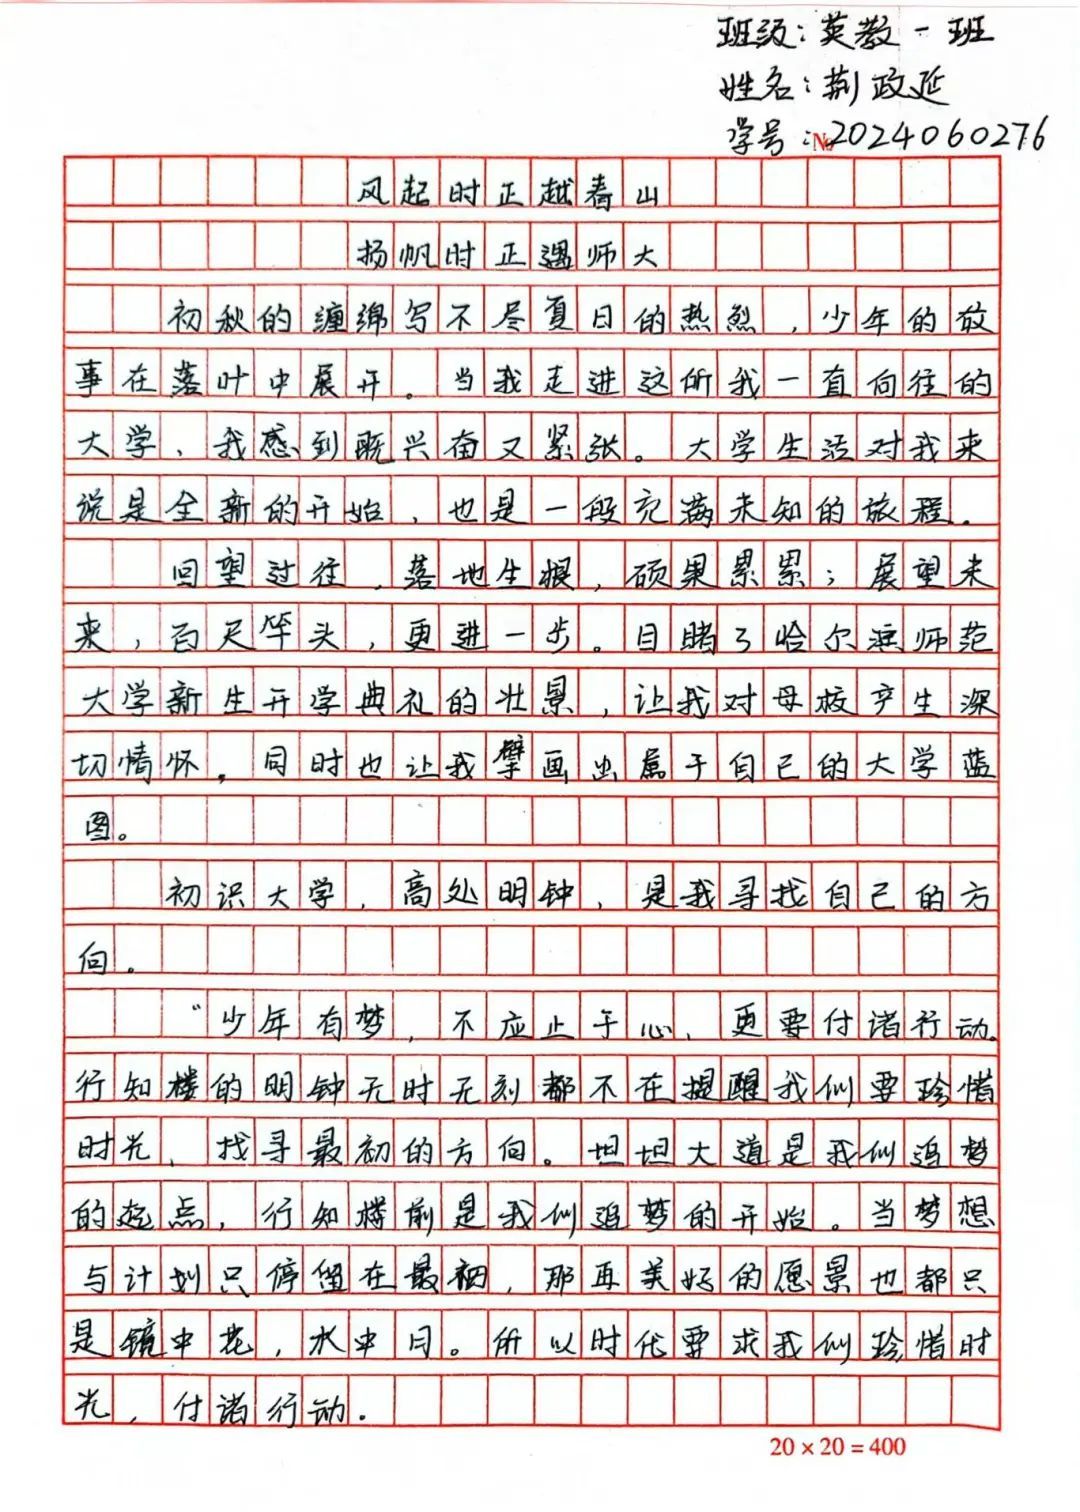 班级：英教一班
姓名：荆政延
学号：No2024060276
风起时正越春山
扬帆时正遇师大
初秋的缠绵写不尽夏日的热烈，少年的故
事在落叶中展开。当我走进这所我一直向往的
大学、我感到既兴奋又紧张。大学生活对我来
说是全新的开始，也是一段充满未知的旅程。
回望过往，落地生根，硕果累累；展望未
来，百尺竿头，更进一步。目睹了哈尔滨师范
大学新生开学典礼的壮景，让我对母校产生深
切情怀，同时也让我擘画出属于自己的大学蓝
图。
初识大学，高处明钟，是我寻找自己的方
向。
“少年有梦，不应止于心，更要付诸行动。
行知楼的明钟无时无刻都不在提醒我们要珍惜
时光，找寻最初的方向。坦坦大道是我们追梦
的起点，行知楼前是我们追梦的开始。当梦想
与计划只停留在最初，那再美好的愿景也都只
是镜中花，水中月。所以时代要求我们珍惜时
光，付诸行动。
20×20=400